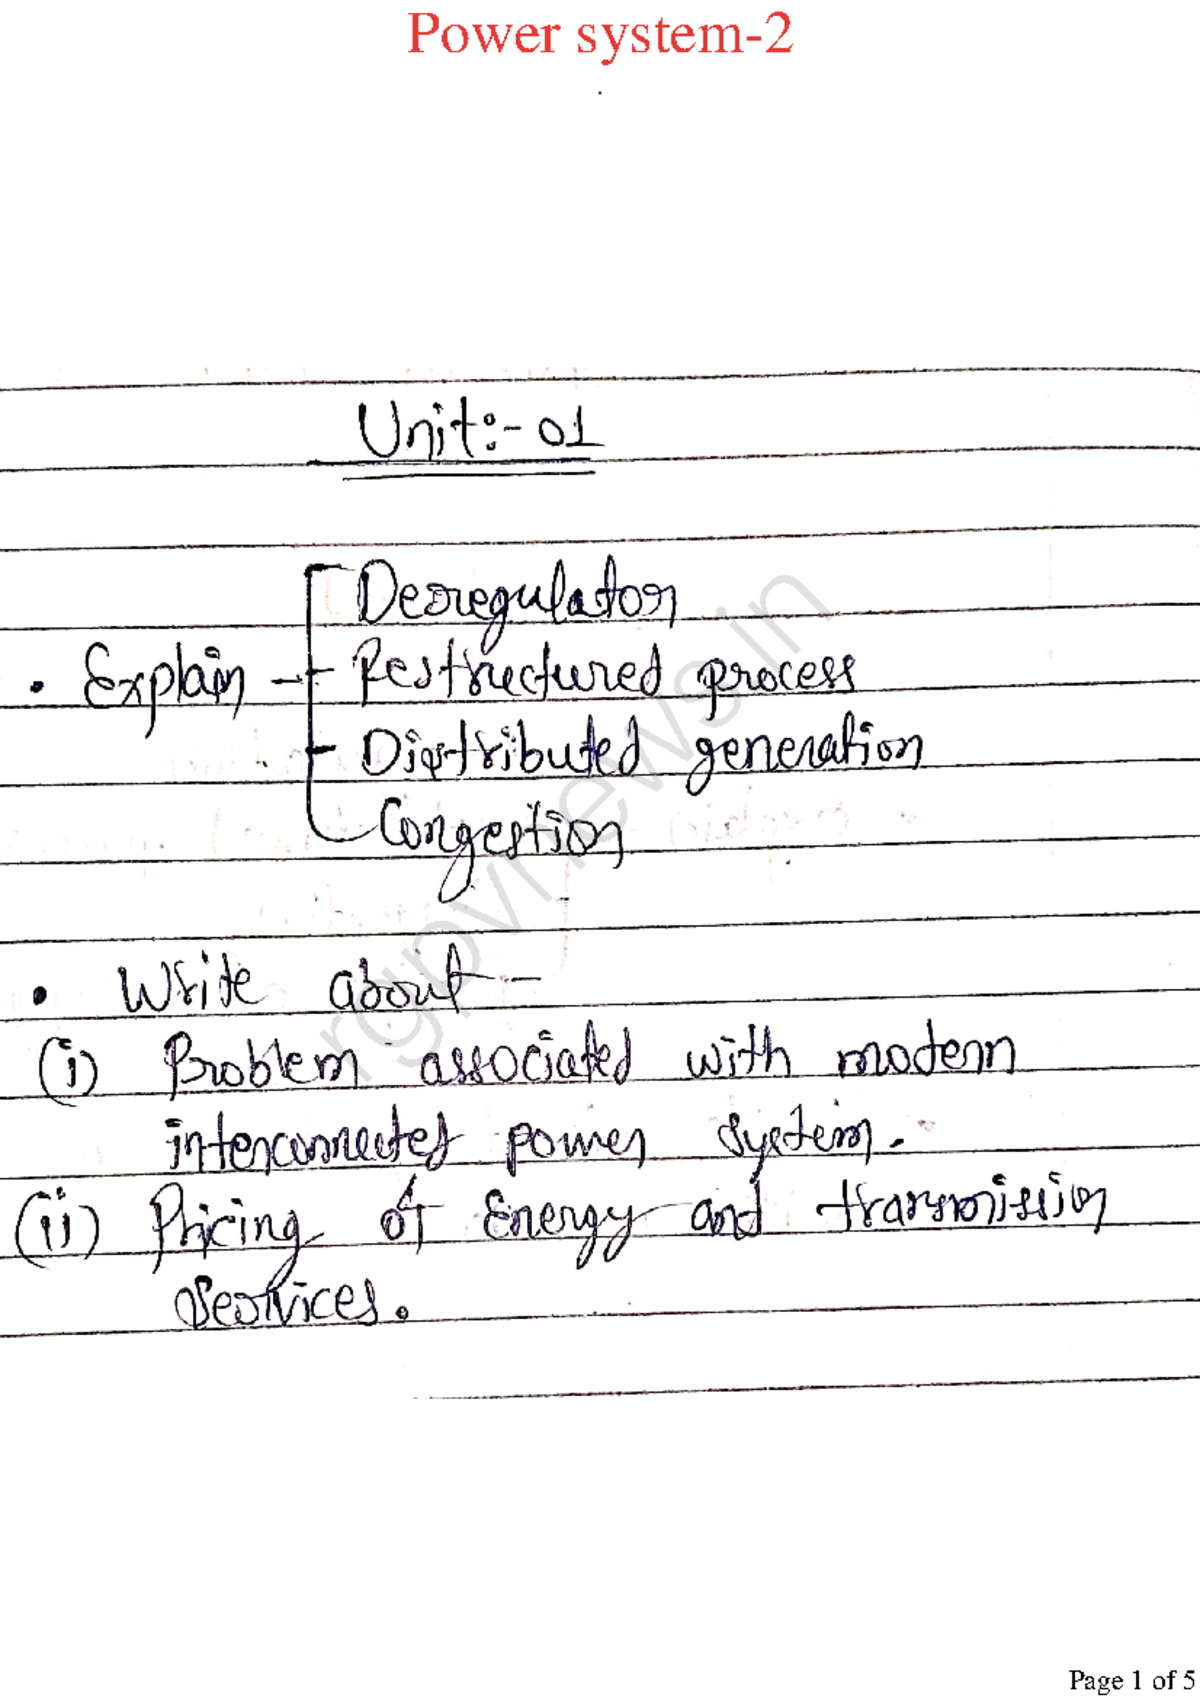 Power system-2
Unit:- 01
Deregulation
• Explain - Restructured process
- Distributed generation
Congestion
• Write about -
(i) Problem associated with modern
interconnected power system.
(ii) Pricing of Energy and transmission
Services.
rgpvnews.in
Page 1 of 5